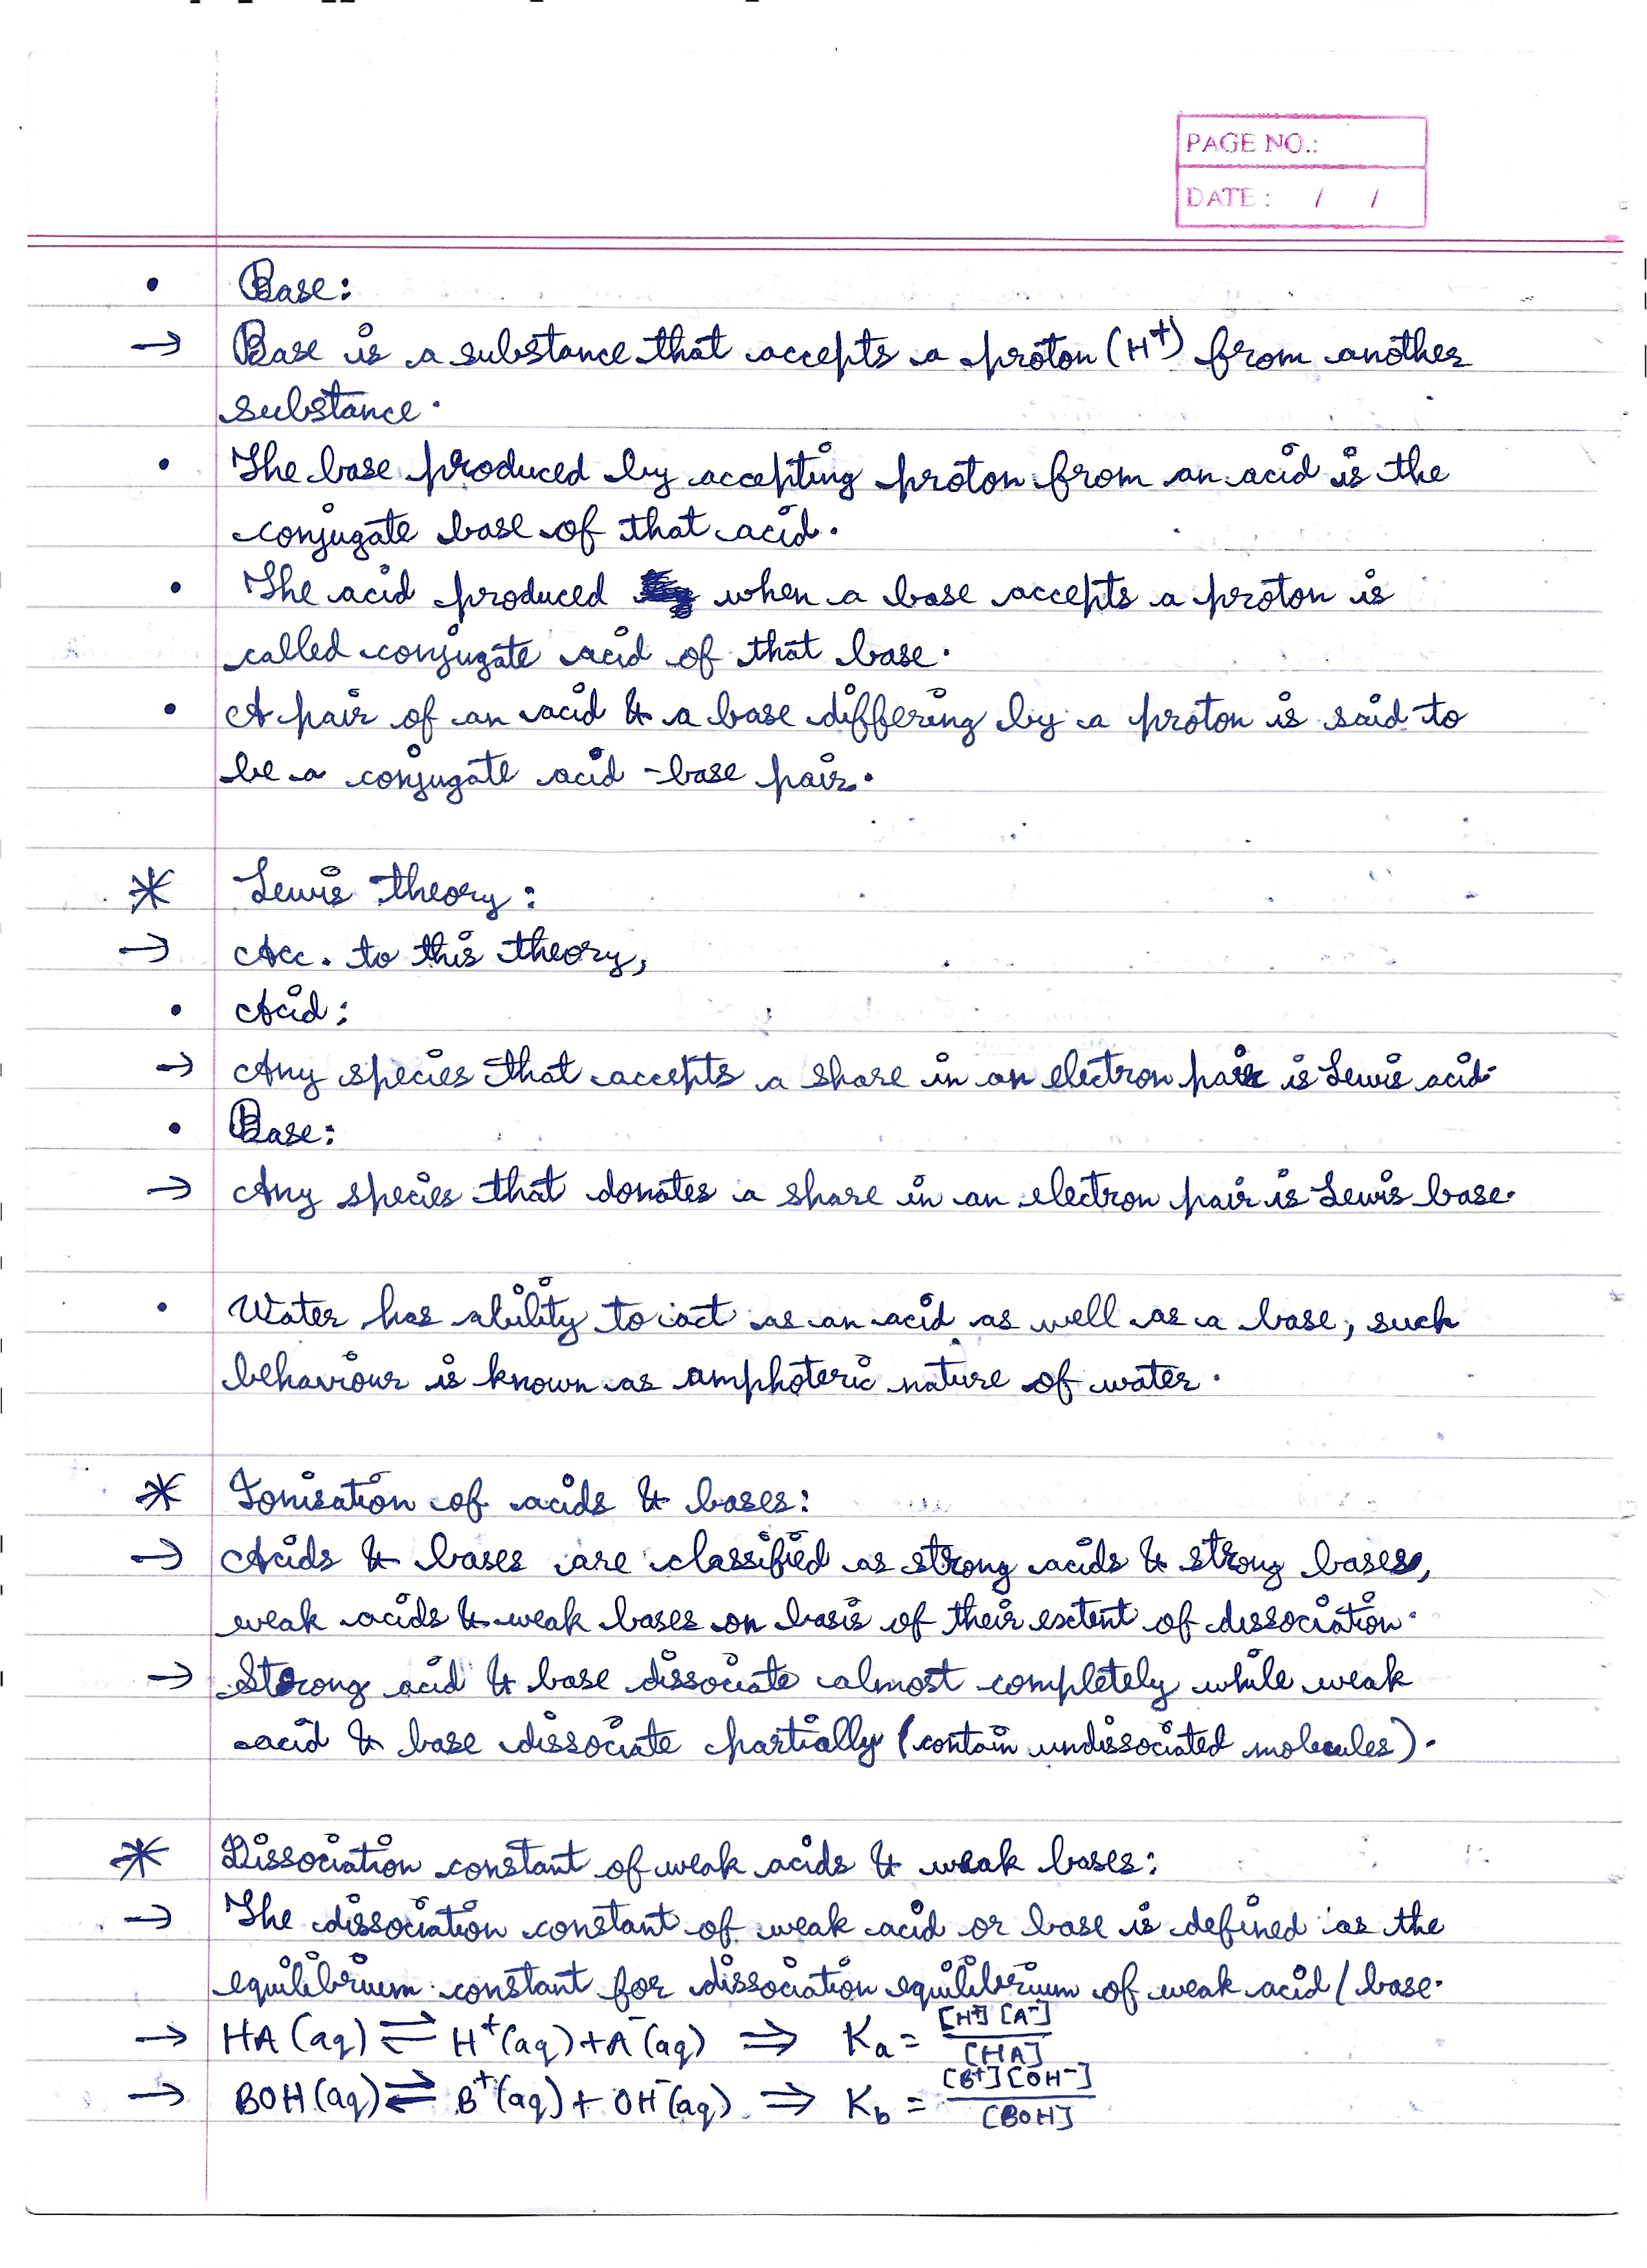 PAGE NO.:
DATE : / /
• Base:
→ Base is a substance that accepts a proton (H⁺) from another
substance.
• The base produced by accepting proton from an acid is the
conjugate base of that acid.
• The acid produced when a base accepts a proton is
called conjugate acid of that base.
• A pair of an acid & a base differing by a proton is said to
be a conjugate acid -base pair.
* Lewis theory:
→ Acc. to this theory,
• Acid:
→ Any species that accepts a share in an electron pair is Lewis acid.
• Base:
→ Any species that donates a share in an electron pair is Lewis base.
• Water has ability to act as an acid as well as a base, such
behaviour is known as amphoteric nature of water.
* Ionisation of acids & bases:
→ Acids & bases are classified as strong acids & strong bases,
weak acids & weak bases on basis of their extent of dissociation.
→ Strong acid & base dissociate almost completely while weak
acid & base dissociate partially (contain undissociated molecules).
* Dissociation constant of weak acids & weak bases:
→ The dissociation constant of weak acid or base is defined as the
equilibrium constant for dissociation equilibrium of weak acid / base.
→ HA (aq) ⇌ H⁺(aq) + A⁻(aq) ⇒ Ka = [H⁺] [A⁻] / [HA]
→ BOH (aq) ⇌ B⁺(aq) + OH⁻(aq) ⇒ Kb = [B⁺] [OH⁻] / [BOH]